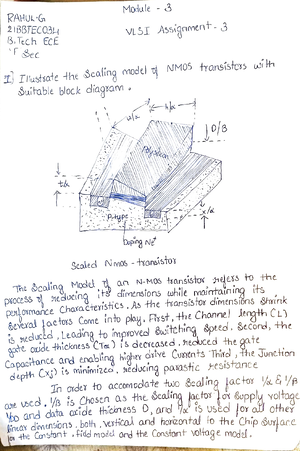 Module - 3
RAHUL-G
21BBTEC034
B.Tech ECE
'F' Sec
VLSI Assignment - 3
1) Illustrate the Scaling model of NMOS transistors with
Suitable block diagram.
w/α
L/α
D/β
Polysilicon
t/α
x/α
P-type
Doping Na
Scaled Nmos - transistor
The Scaling Model of an N-MOS transistor refers to the
process of reducing its dimensions while maintaining its
performance characteristics. As the transistor dimensions shrink
Several factors Come into play. First, the Channel length (L)
is reduced, Leading to improved Switching Speed. Second, the
gate oxide thickness (Tox) is decreased, reduced the gate
Capacitance and enabling higher drive Currents Third, the Junction
depth (Xj) is minimized, reducing parasitic resistance
In order to accomodate two Scaling factor 1/α & 1/β
are used. 1/β is Chosen as the Scaling factor for Supply voltage
VDD and data oxide thickness D, and 1/α is used for all other
linear dimensions, both, vertical and horizontal to the Chip Surface
for the Constant - field model and the Constant voltage model.